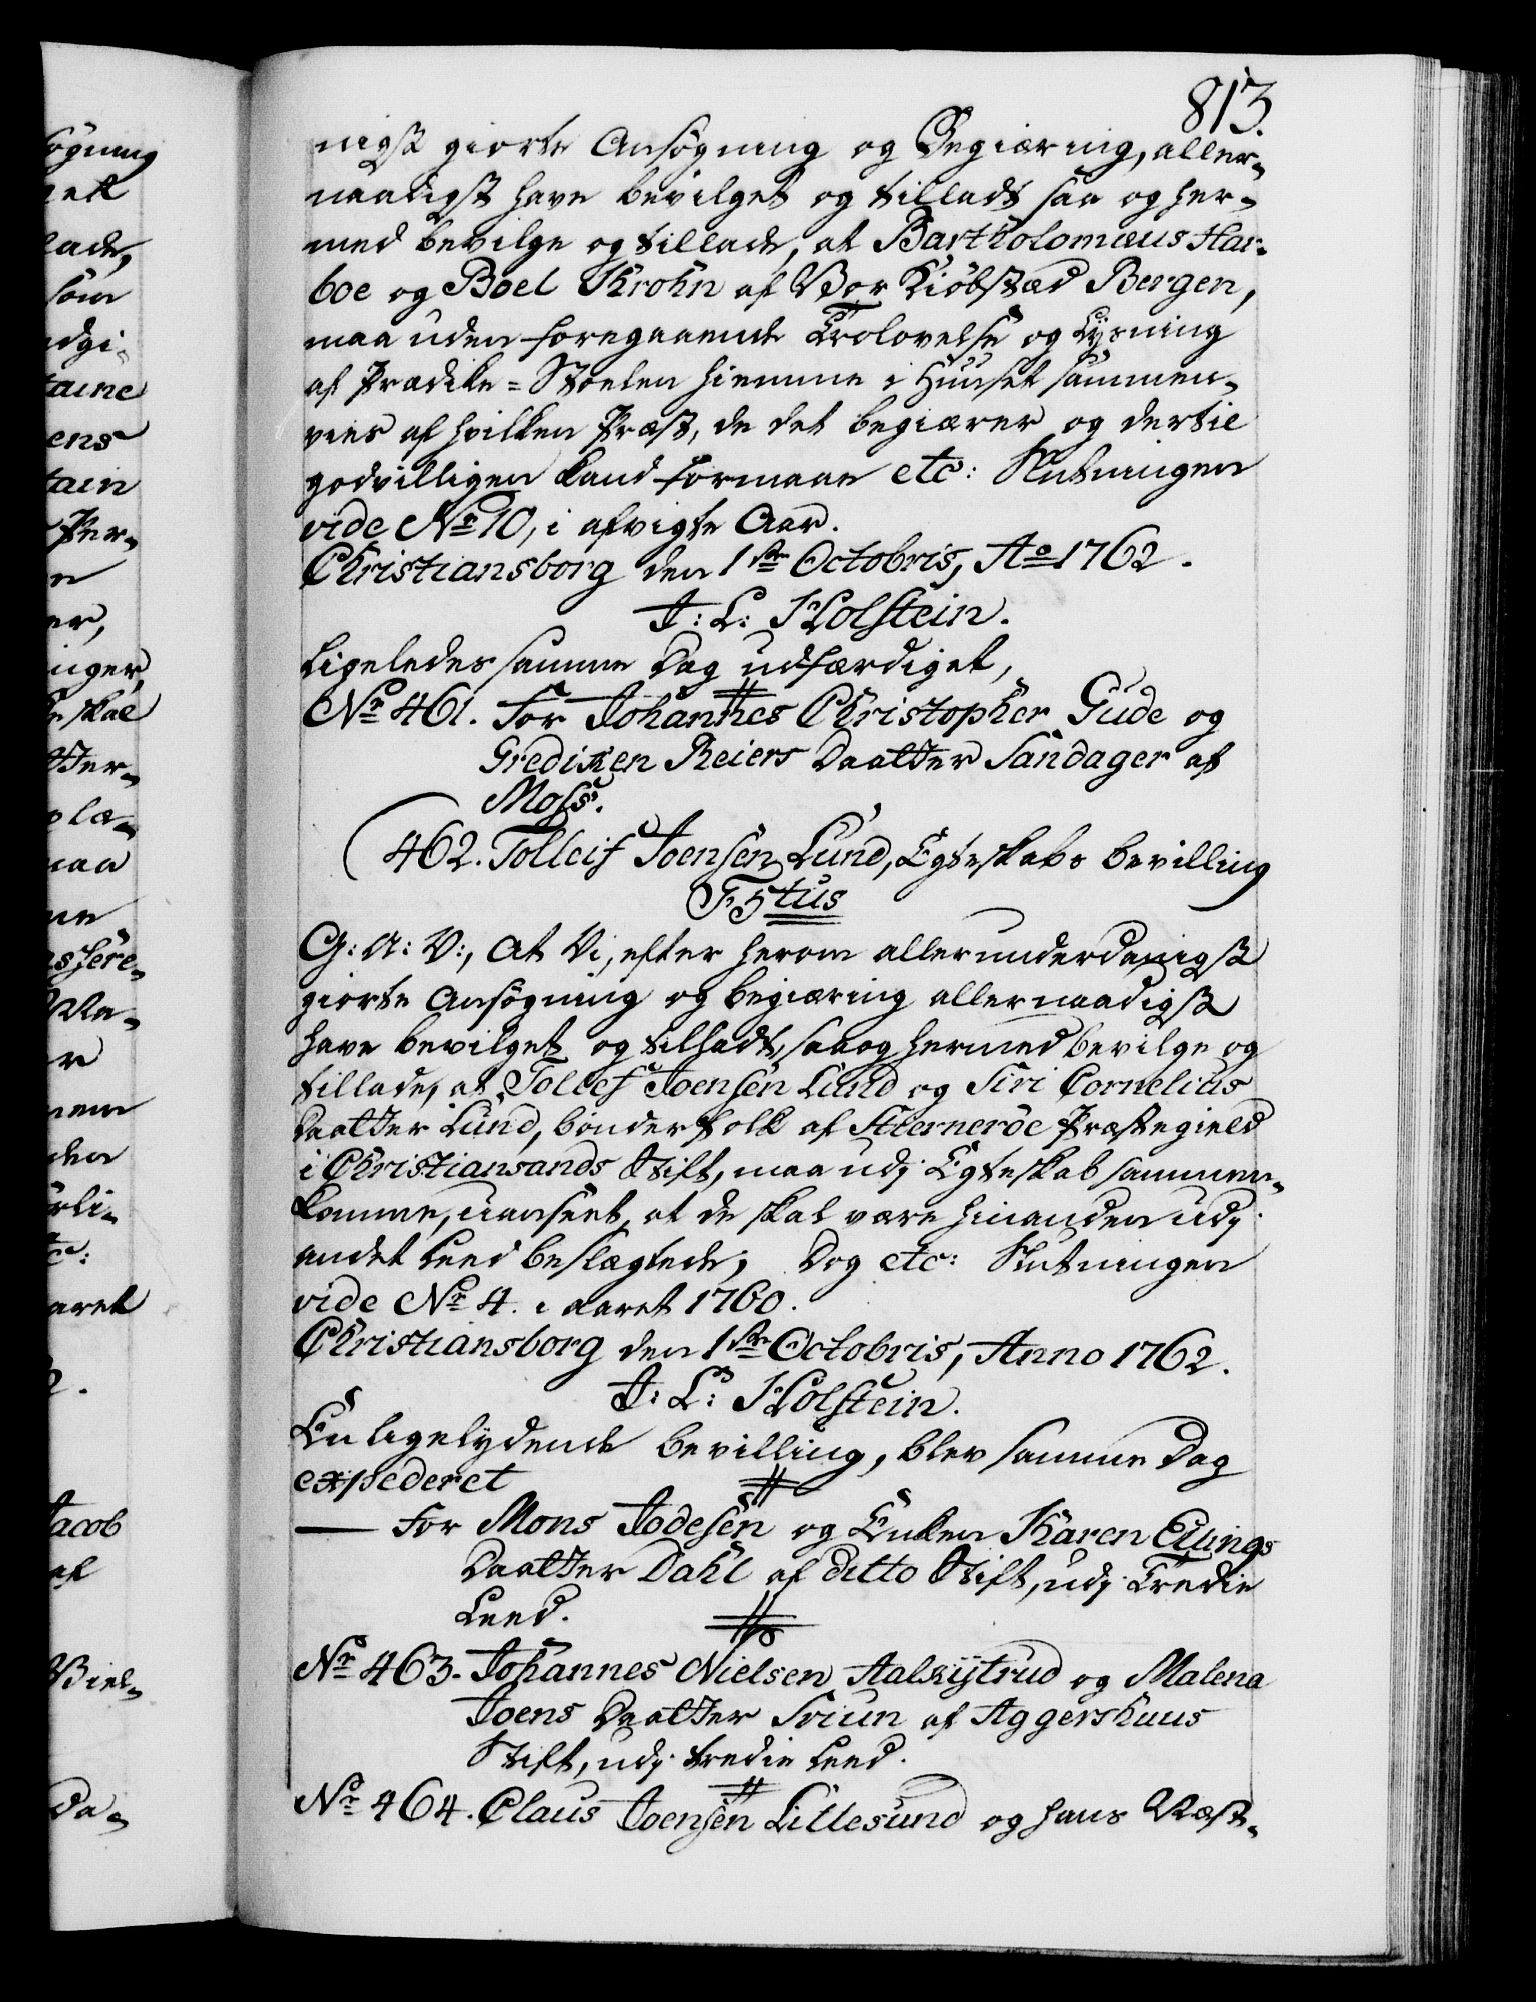 813.
nigst giorte Ansøgning og Begiæring, aller-
naadigst have bevilget og tilladt saa og her-
med bevilge og tillade, at Bartholomæus Har-
boe og Boel Krohn af Vor Kiøbstæd Bergen,
maa uden foregaaende Trolovelse og Lysning
af Prædike-Stoelen hiemme i Huuset sammen-
vies af hvilken Præst, de det begiærer og dertil
godvilligen kand formaae etc: Slutningen
vide No 10, i afvigte Aar.
Christiansborg den 1ste Octobris, Ao 1762.
J: L: Holstein.
Ligeledes samme Dag udfærdiget,
No 461. For Johannes Christopher Gude og
Gredixen Reiers Daatter Sandager af
Moss.
462. Tolleif Joensen Lund, Egteskabs bevilling
F5tus
G: A: V:, At Vi, efter herom allerunderdanigst
giorte Ansøgning og begiæring allernaadigst
have bevilget og tilladt, saa og hermed bevilge og
tillade, at Tollef Joensen Lund og Siri Cornelius
Daatter Lund, bønderfolk af Stiernerøe Præstegield
i Christiansands Stift, maa udj Egteskab sammen-
komme, uanseet, at de skal være hinanden udj
andet Leed beslægtede, Dog etc: Slutningen
vide No 4. i aaret 1760.
Christiansborg den 1ste Octobris, Anno 1762.
J: L: Holstein.
En ligelydende bevilling, blev samme Dag
expederet
— For Mons Jodesen og Enken Karen Ellings
Daatter Dahl af ditto Stift, udj Tredie
Leed.
No 463. Johannes Nielsen Aalkijtrud og Malena
Joens Daatter Sriun af Aggershuus
Stift, udj tredie Leed.
No 464. Claus Joensen Lillesund og hans Næst-